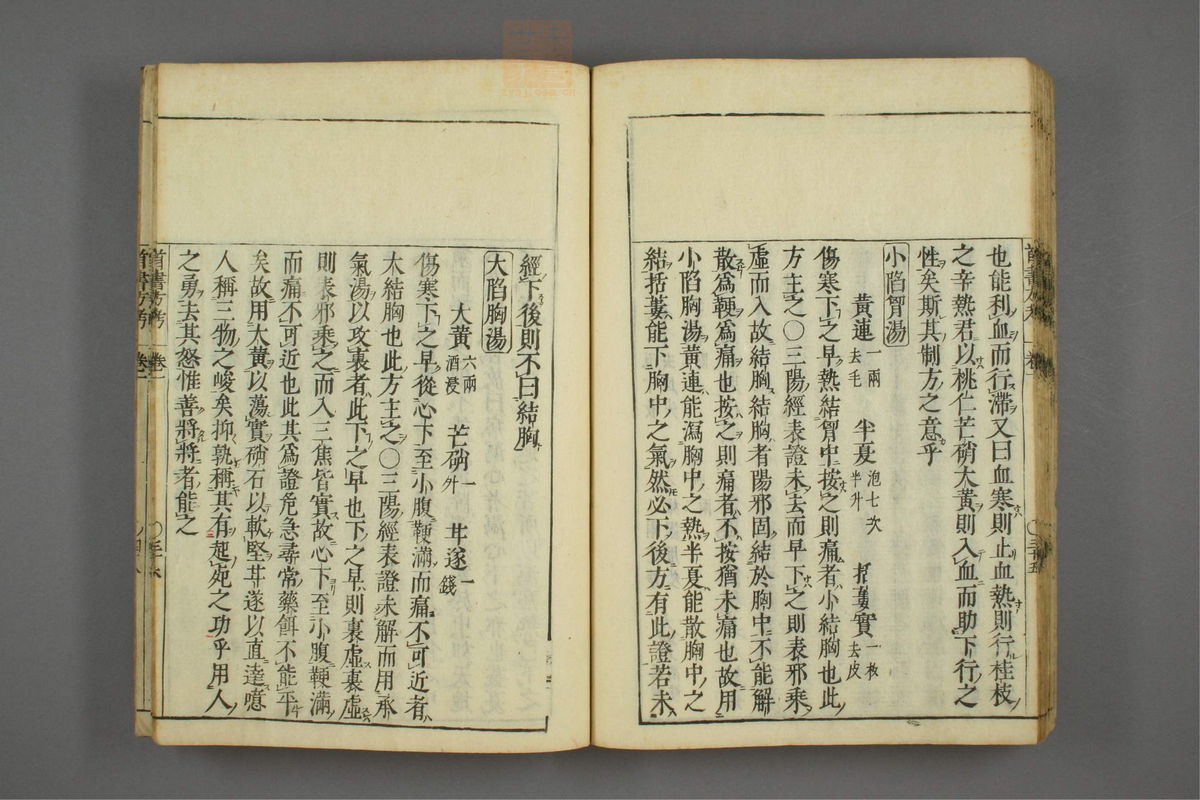 也能利血而行滯又曰血寒則止血熱則行桂枝
之辛熱君以桃仁芒硝大黃則入血而助下行之
性矣斯其制方之意乎
小陷胷湯
黃連一兩去毛 半夏泡七次半升 括蔞實一枚去皮
傷寒下之早熱結胷中按之則痛者小結胸也此
方主之〇三陽經表證未去而早下之則表邪乘
虛而入故結胸結胸者陽邪固結於胸中不能解
散爲鞕爲痛也按之則痛者不按猶未痛也故用
小陷胸湯黃連能瀉胸中之熱半夏能散胸中之
結括蔞能下胸中之氣然必下後方有此證若未
經下後則不曰結胸
大陷胸湯
大黃六兩酒浸 芒硝一升 甘遂一錢
傷寒下之早從心下至小腹鞕滿而痛不可近者
大結胸也此方主之〇三陽經表證未解而用承
氣湯以攻裏者此下之早也下之早則裏虛裏虛
則表邪乘之而入三焦皆實故心下至小腹鞕滿
而痛不可近也此其爲證危急尋常藥餌不能平
矣故用大黃以蕩實硝石以軟堅甘遂以直達噫
人稱三物之峻矣抑孰稱其有起宛之功乎用人
之勇去其怒惟善將將者能之
首書方考 卷一